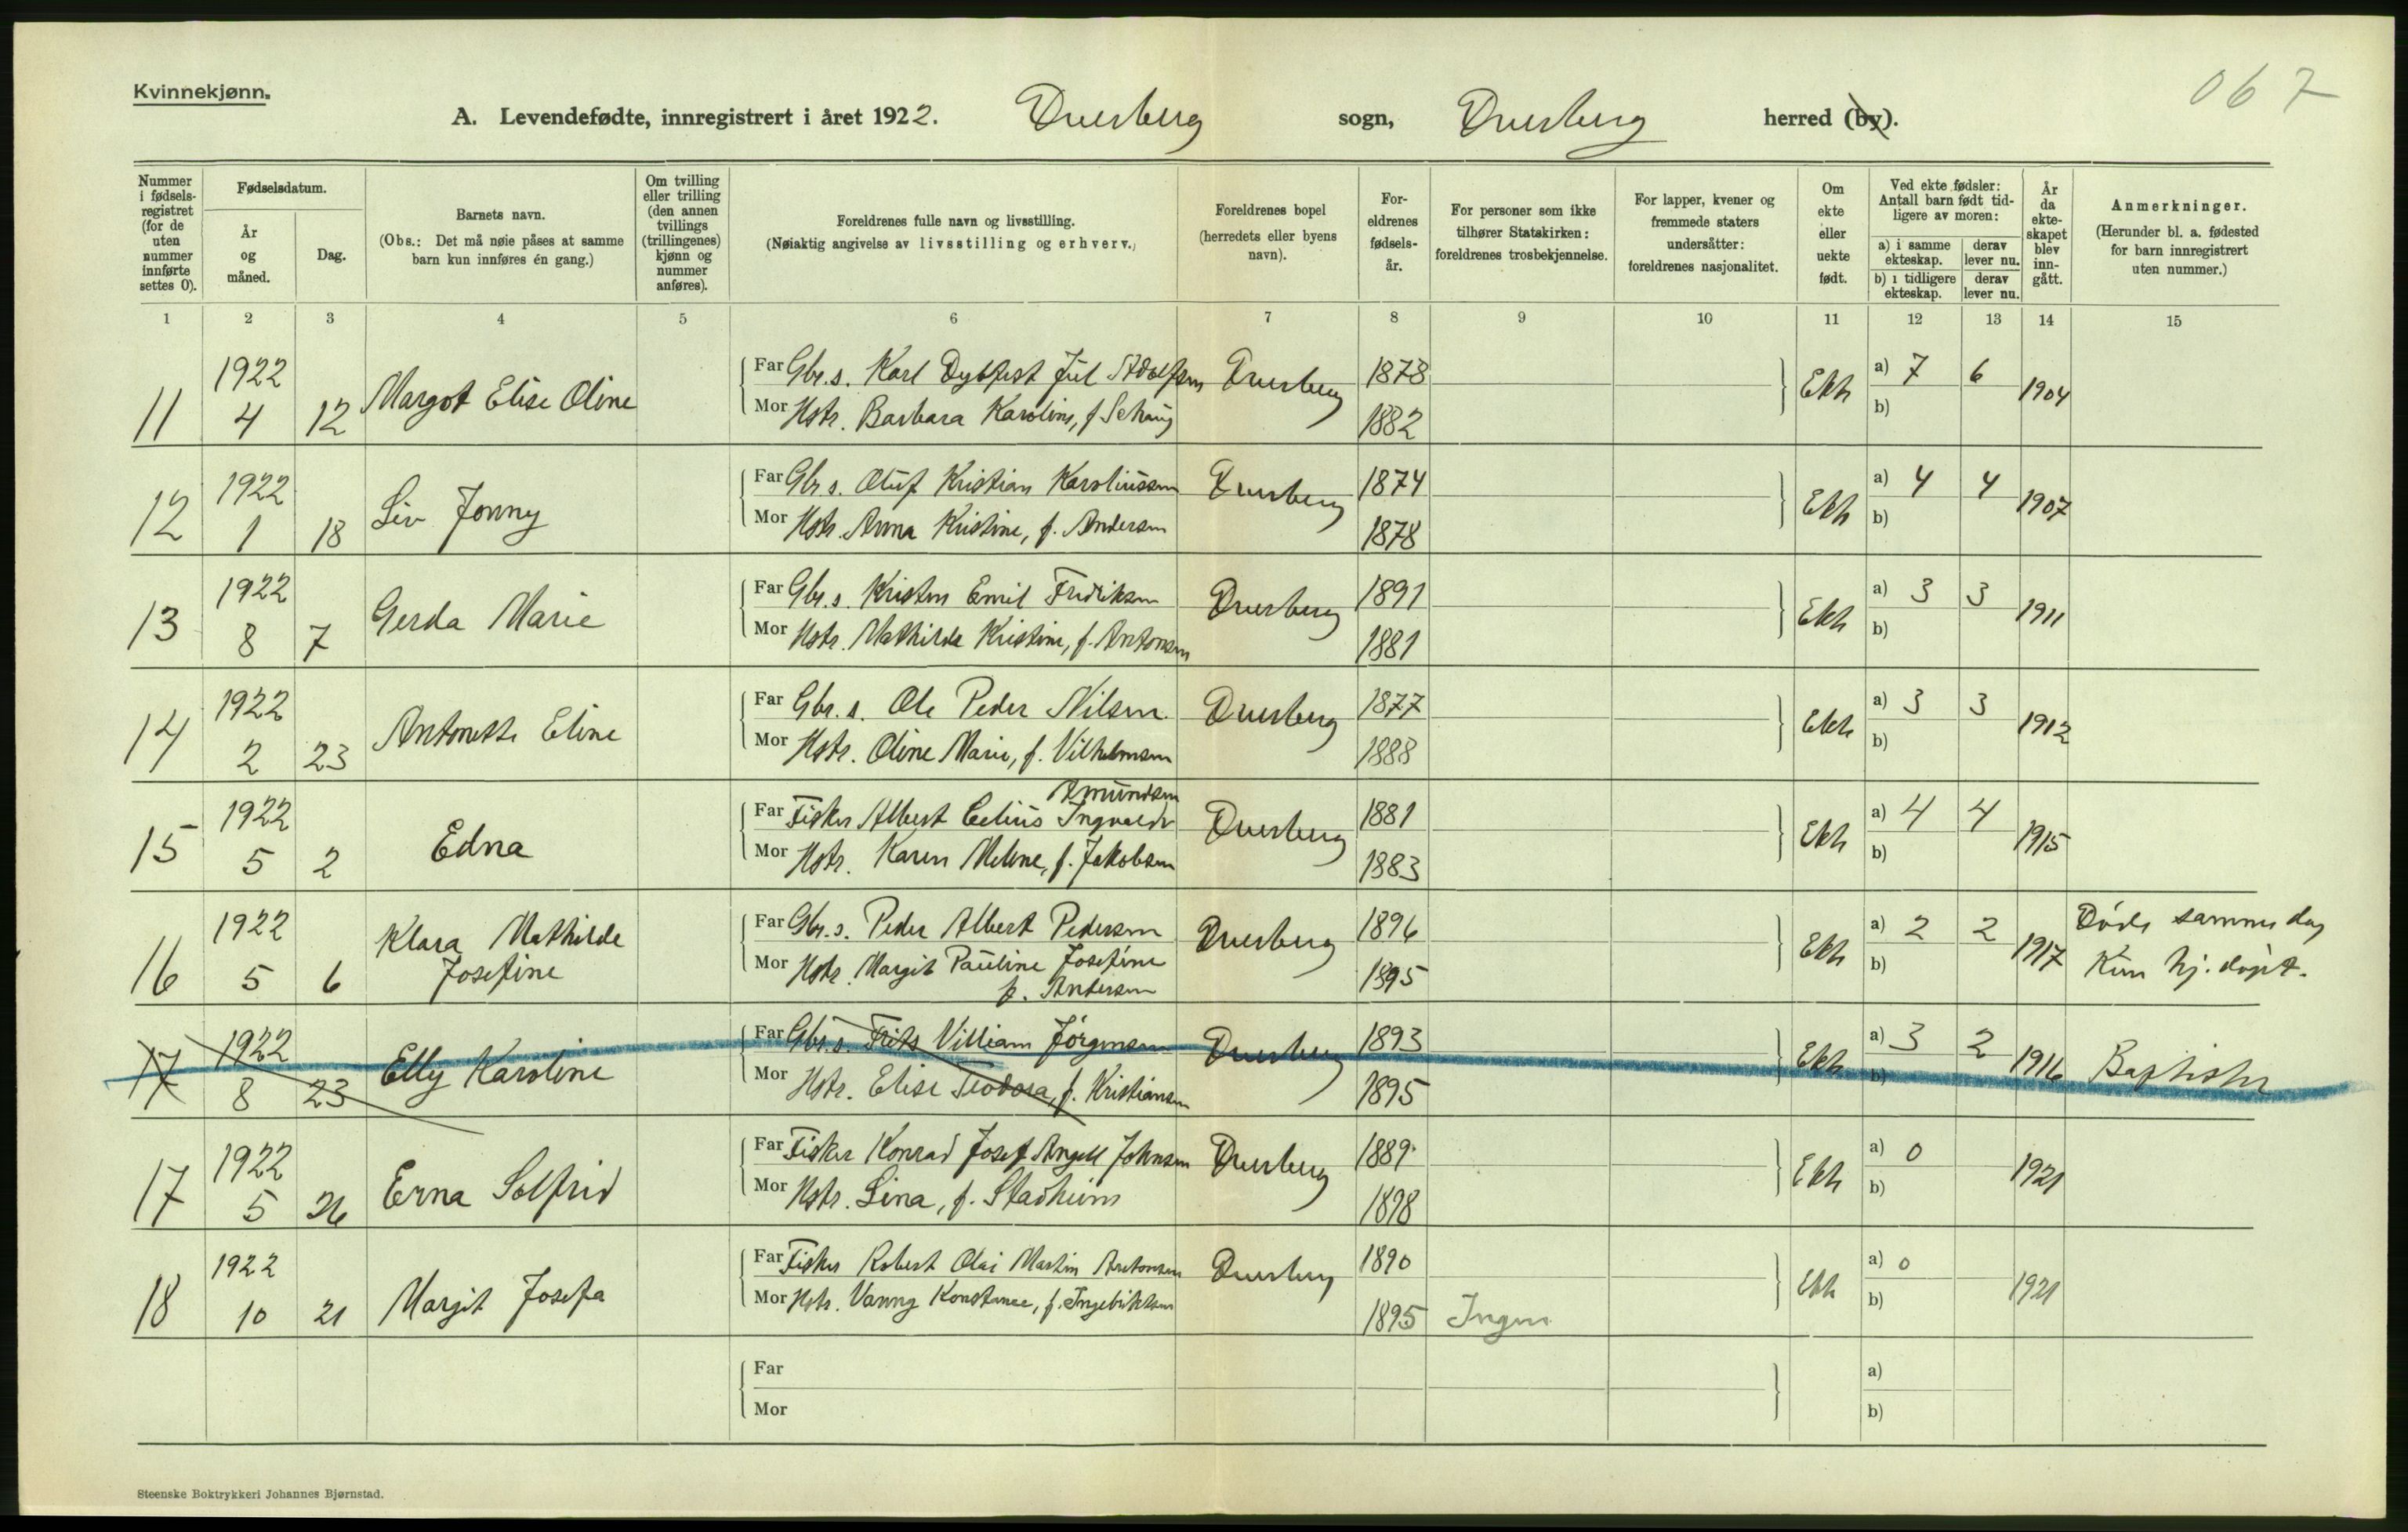 Kvinnekjønn.
067
A. Levendefødte, innregistrert i året 1922. Dverberg sogn, Dverberg herred (by).
Nummer i fødselsregistret (for de uten nummer innførte settes 0).
Fødselsdatum.
År og måned.
Dag.
Barnets navn.
(Obs.: Det må nøie påses at samme barn kun innføres én gang.)
Om tvilling eller trilling (den annen tvillings (trillingenes) kjønn og nummer anføres).
Foreldrenes fulle navn og livsstilling.
(Nøiaktig angivelse av livsstilling og erhverv.)
Foreldrenes bopel (herredets eller byens navn).
Foreldrenes fødselsår.
For personer som ikke tilhører Statskirken: foreldrenes trosbekjennelse.
For lapper, kvener og fremmede staters undersåtter: foreldrenes nasjonalitet.
Om ekte eller uekte født.
Ved ekte fødsler: Antall barn født tidligere av moren:
a) i samme ekteskap.
derav lever nu.
b) i tidligere ekteskap.
derav lever nu.
År da ekteskapet blev inngått.
Anmerkninger.
(Herunder bl. a. fødested for barn innregistrert uten nummer.)
1 2 3 4 5 6 7 8 9 10 11 12 13 14 15
1922 Far Gbr.s. Karl Dybfest Jul Adolfsen Dverberg 1878 a) 7 6
11 4 12 Margot Elise Oline Mor Hstr. Barbara Karoline, f. Schaug 1882 Ekte b) 1904
1922 Far Gbr.s. Oluf Kristian Karoliussen Dverberg 1874 a) 4 4
12 1 18 Liv Jonny Mor Hstr. Anna Kristine, f. Andersen 1878 Ekte b) 1907
1922 Far Gbr.s. Kristen Emil Fredriksen Dverberg 1891 a) 3 3
13 8 7 Gerda Marie Mor Hstr. Mathilde Kristine, f. Antonsen 1881 Ekte b) 1911
1922 Far Gbr.s. Ole Peder Nilsen Dverberg 1877 a) 3 3
14 2 23 Antonette Eline Mor Hstr. Oline Marie, f. Vilhelmsen 1888 Ekte b) 1912
Amundsen
1922 Far Fisker Albert Celius Ingvaldr Dverberg 1881 a) 4 4
15 5 2 Edna Mor Hstr. Karen Melene, f. Jakobsen 1883 Ekte b) 1915
1922 Klara Mathilde Far Gbr.s. Peder Albert Pedersen Dverberg 1896 a) 2 2 Døde samme dag
16 5 6 Josefine Mor Hstr. Margit Pauline Josefine 1895 Ekte b) 1917 Kun hj. døpt.
f. Andersen
1922 Far Gbr.s. Frits Villiam Jørgensen Dverberg 1893 a) 3 2
17 8 23 Elly Karoline Mor Hstr. Elise Teodora, f. Kristiansen 1895 Ekte b) 1916 Baptister
1922 Far Fisker Konrad Josef Angell Johnsen Dverberg 1889 a) 0
17 5 26 Erna Solfrid Mor Hstr. Lina, f. Stadheim 1898 Ekte b) 1921
1922 Far Fisker Robert Olai Martin Antonsen Dverberg 1890 a) 0
18 10 21 Margit Josefa Mor Hstr. Vanny Konstance, f. Ingebriktsen 1895 Ingen Ekte b) 1921
Far a)
Mor b)
Steenske Boktrykkeri Johannes Bjørnstad.